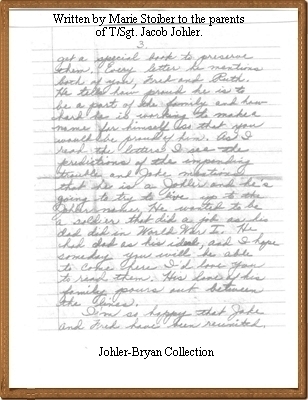 Written by Marie Stoiber to the parents
of T/Sgt. Jacob Johler.
3
get a special book to preserve
them. Every letter he mentions
both of you, Fred and Ruth.
He tells how proud he is to
be a part of the family and how
hard he is working to make a
name for himself so that you
would be proud of him. As I
read the letters I see the
predictions of the impending
trouble and Jake mentions
that he is a Johler and he's
going to try to live up to the
Johler name. He wanted to be
a soldier that did a job as his
dad did in World War I. He
had dad as his ideal, and I hope
someday you will be able
to come here I'd love you
to read them. His love of his
family pours out between
the lines.
I'm so happy that Jake
and Fred have been reunited.
Johler-Bryan Collection